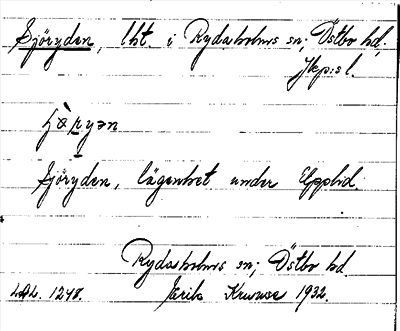 Sjöryden, lht. i Rydaholms sn; Östbo hd,
Jkp:s l.
Sjöryden, lägenhet under
Rydaholms sn; Östbo hd
1248. Kruuse 1932.